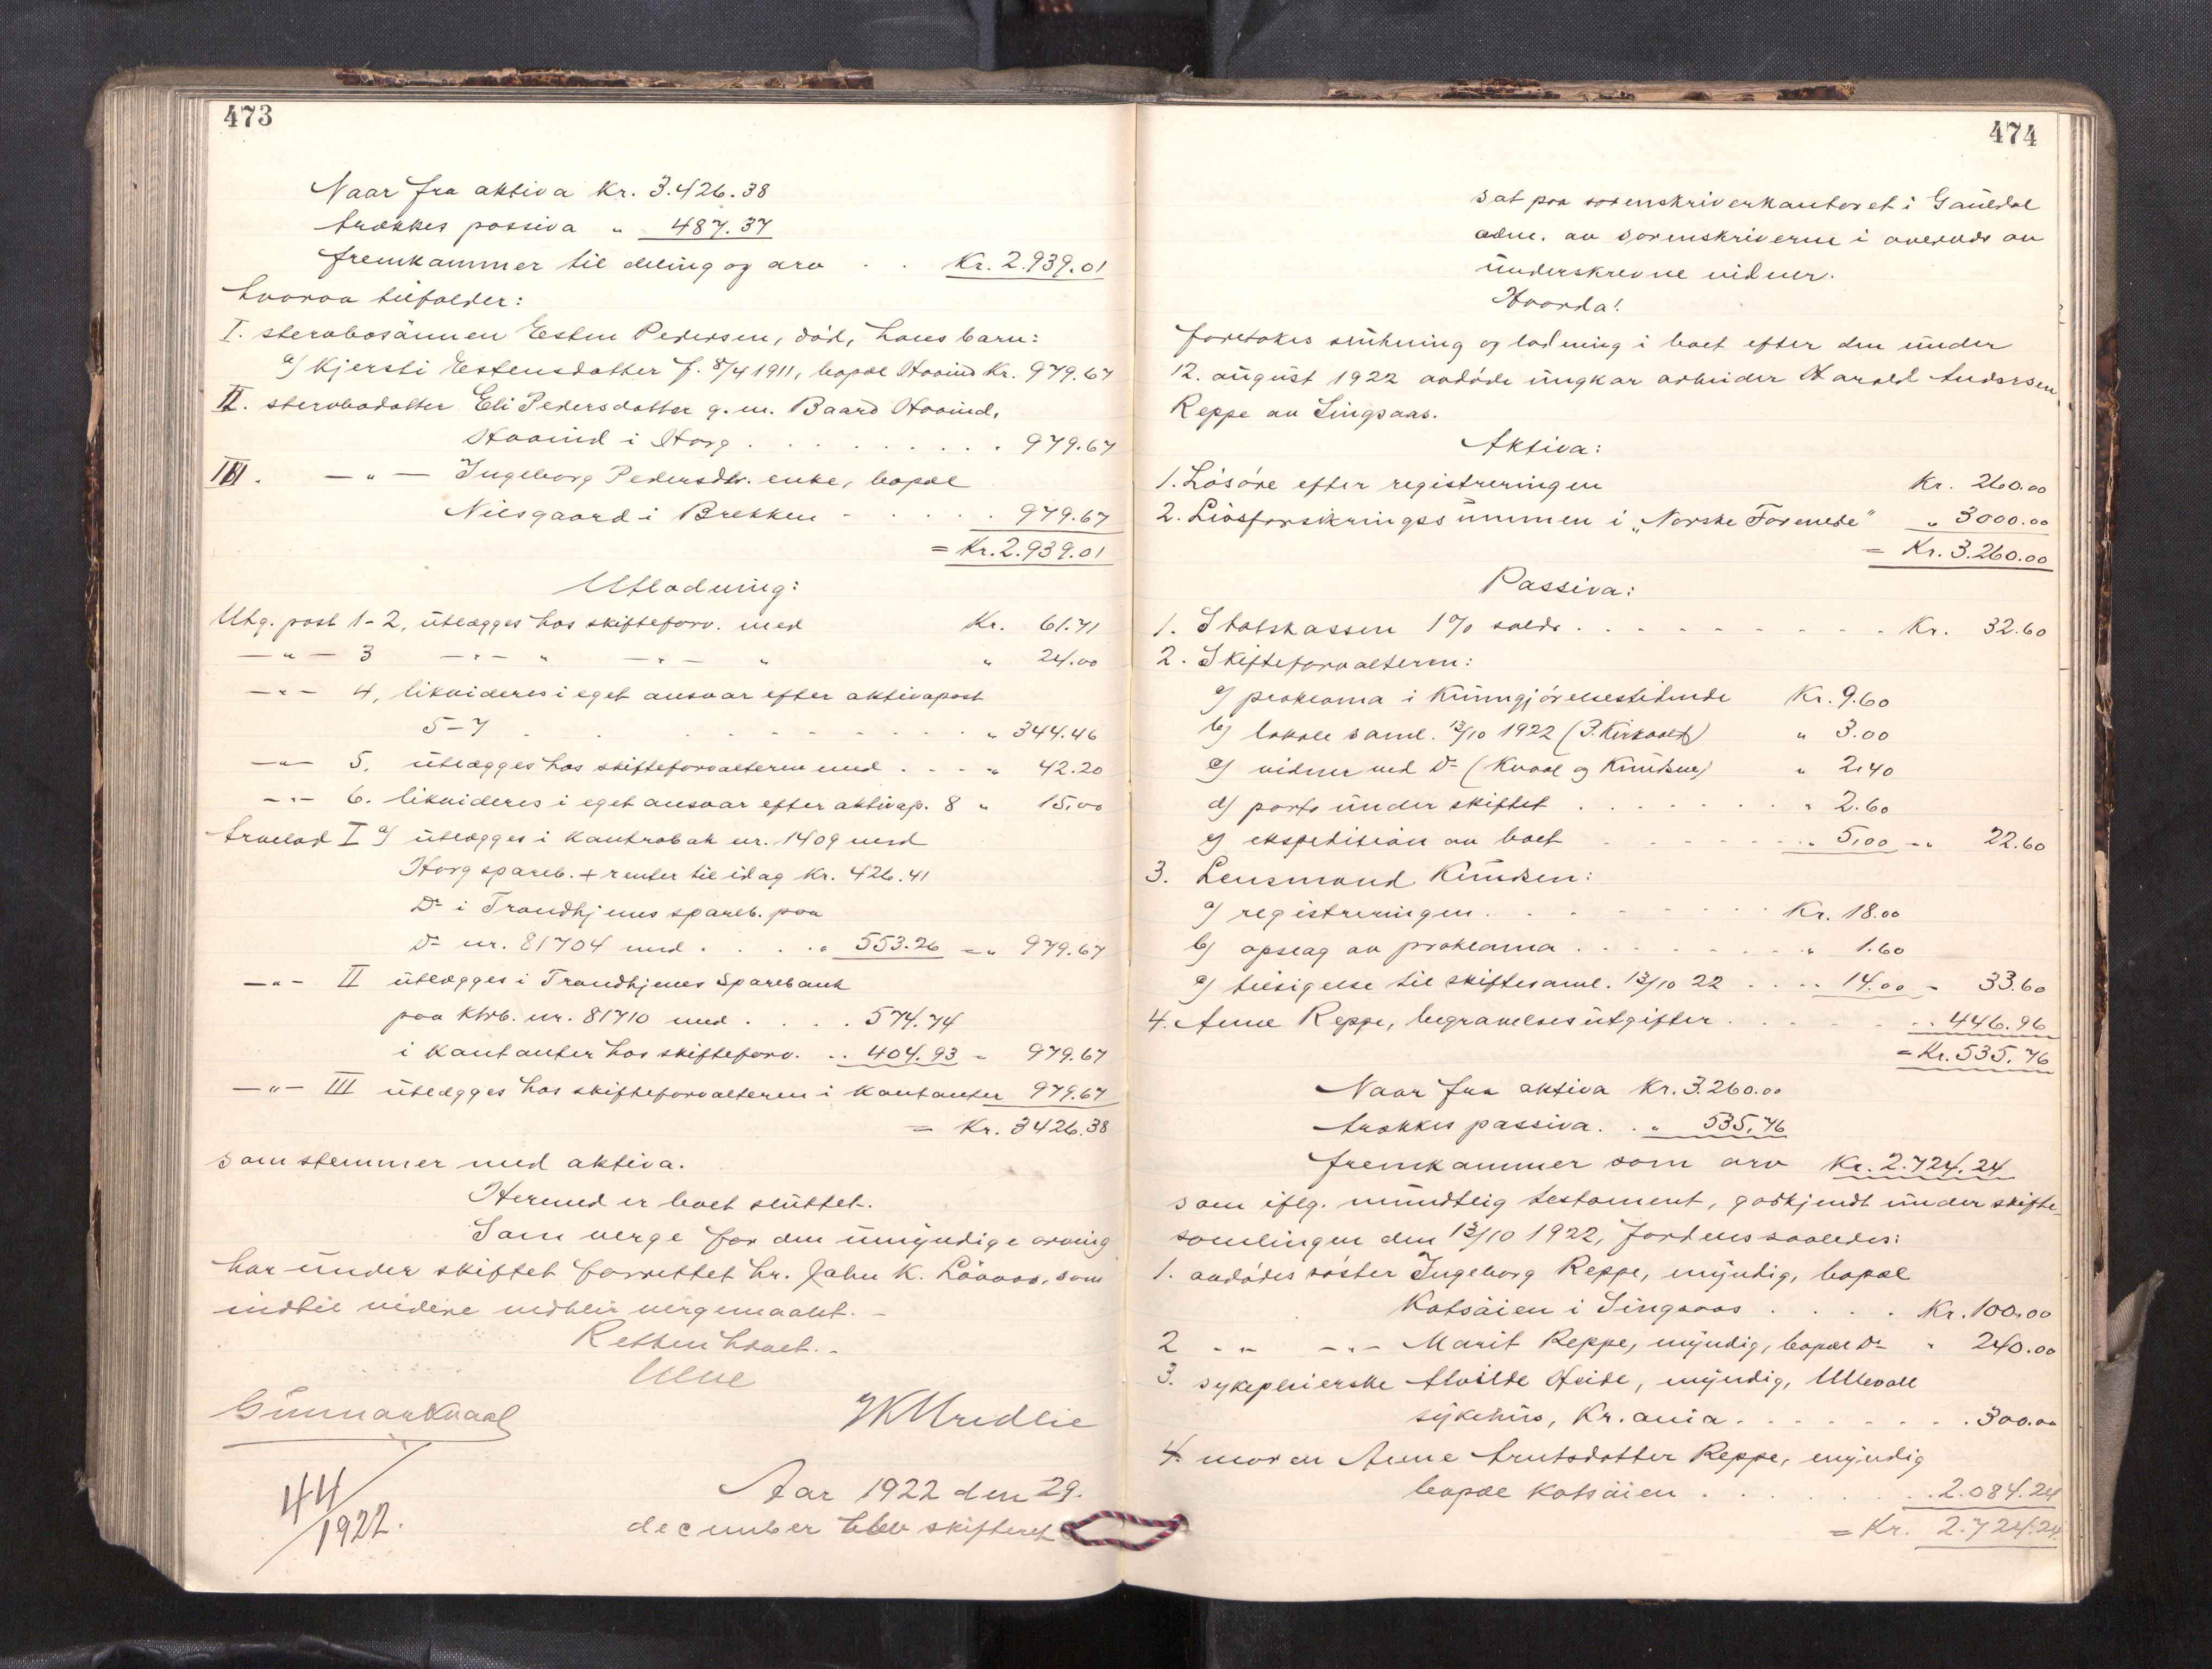 473
Naar fra aktiva Kr. 3.426.38
trækkes passiva " 487.37
fremkommer til deling og arv . . Kr. 2.939.01
hvorav tilfalder:
I. stervbosönnen Esten Pedersen, död, hans barn:
a) Kjersti Estensdatter f. 8/4 1911, bopæl Hovind Kr. 979.67
II. stervbodatter Eli Pedersdatter g. m. Baard Hovind,
Hovind i Horg . . . . . . . . . 979.67
III. —"— Ingeborg Pedersdtr. enke, bopæl
Nilsgaard i Brekken - . . . . . 979.67
= Kr. 2.939.01
Utlodning:
Utg. post 1-2, utlægges hos skifteforv. med Kr. 61.71
—"— 3 —"— " —"— " " 24.00
—"— 4, likvideres i eget ansvar efter aktivapost
5-7 . . . . . . . . . . " 344.46
—"— 5. utlægges hos skifteforvalteren med . . . " 42.20
—"— 6. likvideres i eget ansvar efter aktivap. 8 " 15.00
Arvelod I a) utlægges i kontrabok nr. 1409 med
Horg spareb. + renter til idag Kr. 426.41
Do i Trondhjems spareb. paa
Do nr. 81704 med . . . . " 553.26 = " 979.67
—"— II utlægges i Trondhjems Sparebank
paa Ktrb. nr. 81710 med . . . . 574.74
i kontanter hos skifteforv. . . 404.93 - 979.67
—"— III utlægges hos skifteforvalteren i kontanter 979.67
= Kr. 3426.38
som stemmer med aktiva.
Hermed er boet sluttet.
Som verge for den umyndige arving
har under skiftet forrettet hr. John K. Löaas, som
indtil videre vedblir vergemaalet. -
Retten hævet. -
Ulve
Gunnar Kvaal
44/1922.
Aar 1922 den 29.
december blev skifteret
474
sat paa sorenskriverkontoret i Gauldal
adm. av sorenskriveren i overvær av
underskrevne vidner.
Hvorda!
foretokes slutning og lodning i boet efter den under
12. august 1922 avdöde ungkar arbeider Harald Andersen
Reppe av Singsaas.
Aktiva:
1. Lösöre efter registreringen Kr. 260.00
2. Livsforsikringssummen i "Norske Forenede" " 3000.00
= Kr. 3.260.00
Passiva:
1. Statskassen 1% saldo . . . . . . . . . . Kr. 32.60
2. Skifteforvalteren:
a) proklama i Kunngjörelsestidende Kr. 9.60
b) lokale saml. 13/10 1922 (J. Kirkvold) " 3.00
c) vidner ved Do (Kvaal og Knudsen) " 2.40
d) porto under skiftet . . . . . . . " 2.60
e) ekspedition av boet . . . . . . " 5.00 - " 22.60
3. Lensmand Knudsen:
a) registreringen . . . . . . . . Kr. 18.00
b) opslag av proklama . . . . . . . " 1.60
c) tilsigelse til skiftesaml. 13/10 22 . . . . 14.00 - 33.60
4. Anne Reppe, begravelsesutgifter . . . . . . 446.96
= Kr. 535.76
Naar fra aktiva Kr. 3.260.00
trækkes passiva . . " 535.76
fremkommer som arv Kr. 2.724.24
som iflg. mundtlig testament, godkjendt under skifte-
samlingen den 13/10 1922, fordeles saaledes:
1. avdödes söster Ingeborg Reppe, myndig, bopæl
Kotsöien i Singsaas . . . . Kr. 100.00
2 -"- —"— Marit Reppe, myndig, bopæl Do " 240.00
3. sykepleierske Alvilde Heide, myndig, Ullevaal
sykehus, Kr.ania . . . . . . . . 300.00
4. moren Anne Arntsdatter Reppe, myndig
bopæl Kotsöien . . . . . . . . 2.084.24
= Kr. 2.724.24